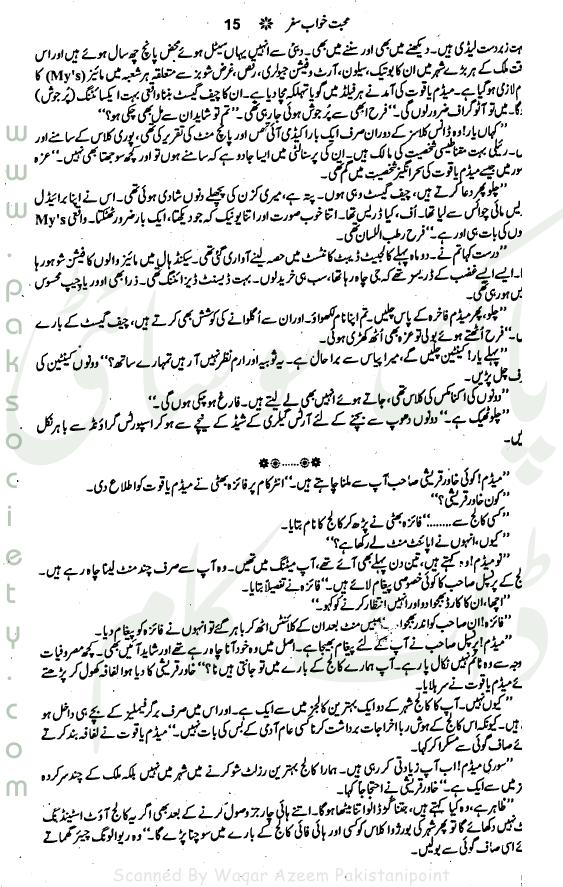 محبت خواب سفر ❋ 15
ہت زبردست لیڈی ہیں۔ دیکھنے میں بھی اور سننے میں بھی۔ دبئی سے انہیں یہاں سیٹل ہوئے محض پانچ چھ سال ہوئے ہیں اور اس
قت ملک کے ہر بڑے شہر میں ان کا بوتیک، سیلون، آرٹ و فیشن جیولری، رقص، غرض شوبز سے متعلقہ ہر شعبہ میں مائیز (My's) کا
م لازمی ہوگیا ہے۔ میڈم یاقوت کی آمد نے ہر فیلڈ میں گویا تہلکہ مچا دیا ہے۔ ان کا چیف گیسٹ بننا واقعی بہت ایکسائٹنگ (پُرجوش)
گا۔ میں تو آٹوگراف ضرور لوں گی۔“ فرح ابھی سے پُرجوش ہوئی جا رہی تھی۔ ”تم تو شاید ان سے مل بھی چکی ہو؟“
”کہاں یار! وہ ڈانس کلاسز کے دوران صرف ایک بار اکیڈمی آئی تھیں اور پانچ منٹ کی تقریر کی تھی، پوری کلاس کے سامنے اور
ں۔ ریئلی بہت مقناطیسی شخصیت کی مالک ہیں۔ ان کی پرسنالٹی میں ایسا جادو ہے کہ سامنے ہوں تو اور کچھ سوجھتا بھی نہیں۔“ عزہ
ور میں جیسے میڈم یاقوت کی سحر انگیز شخصیت میں گم تھی۔
”چلو پھر دعا کرتے ہیں، چیف گیسٹ وہی ہوں۔ پتہ ہے، میری کزن کی پچھلے دنوں شادی ہوئی تھی۔ اس نے اپنا برائیڈل
یس مائی چوائس سے لیا تھا۔ اُف، کیا ڈریس تھا۔ اتنا خوب صورت اور اتنا یونیک کہ جو دیکھتا، ایک بار ضرور ٹھٹکتا۔ واقعی My's
وں کی بات ہی اور ہے۔“ فرح رطب اللسان تھی۔
”درست کہا تم نے۔ دو ماہ پہلے کالجیٹ ڈیبیٹ کانٹسٹ میں حصہ لینے آواری گئی تھی۔ سیکنڈ ہال میں مائیز والوں کا فیشن شو ہو رہا
ا۔ ایسے ایسے غضب کے ڈریسز تھے کہ جی چاہ رہا تھا، سب ہی خرید لوں۔ بہت ڈیسنٹ ڈیزائننگ تھی۔ ذرا بھی اوور یا چیپ محسوس
یں ہو رہی تھی۔
”چلو، پھر میڈم فاخرہ کے پاس چلیں۔ تم اپنا نام لکھواؤ۔ اور ان سے اُگلوانے کی کوشش بھی کرتے ہیں، چیف گیسٹ کے بارے
ں۔“ فرح اُٹھتے ہوئے بولی تو عزہ بھی اُٹھ کھڑی ہوئی۔
”پہلے یار! کینٹین چلیں گے، میرا پیاس سے برا حال ہے۔ یہ ثوبیہ اور ارم نظر نہیں آ رہیں تمہارے ساتھ؟“ دونوں کینٹین کی
ف چل پڑیں۔
”دونوں کی اکنامکس کی کلاس تھی، جاتے ہوئے انہیں بھی لے لیتے ہیں۔ فارغ ہو چکی ہوں گی۔“
”چلو ٹھیک ہے۔“ دونوں دھوپ سے بچنے کے لئے آرٹس گیلری کے شیڈ کے نیچے سے ہو کر اسپورٹس گراؤنڈ سے باہر نکل
یں۔
❋❋......❋❋
”میڈم! کوئی خاور قریشی صاحب آپ سے ملنا چاہتے ہیں۔“ انٹرکام پر فائزہ بھٹی نے میڈم یاقوت کو اطلاع دی۔
”کون خاور قریشی؟“
”کسی کالج سے........“ فائزہ بھٹی نے پڑھ کر کالج کا نام بتایا۔
”کیوں، انہوں نے اپائنٹ منٹ لے رکھا ہے؟“
”نو میڈم! وہ کہتے ہیں، تین دن پہلے بھی آئے تھے، آپ میٹنگ میں تھیں۔ وہ آپ سے صرف چند منٹ لینا چاہ رہے ہیں۔
لج کے پرنسپل صاحب کا کوئی خصوصی پیغام لائے ہیں۔“ فائزہ نے تفصیلاً بتایا۔
”اچھا، ان کا کارڈ بھجوا دو اور انہیں انتظار کرنے کو کہو۔“
”فائزہ! ان صاحب کو اندر بھجوا۔“ بیس منٹ بعد ان کے کلائنٹس اٹھ کر باہر گئے تو انہوں نے فائزہ کو پیغام دیا۔
”میڈم! پرنسپل صاحب نے آپ کے لئے پیغام بھیجا ہے۔ اصل میں وہ خود آنا چاہ رہے تھے اور شاید آئیں بھی۔ کچھ مصروفیات
وجہ سے وہ ٹائم نہیں نکال پا رہے۔ آپ ہمارے کالج کے بارے میں تو جانتی ہیں نا؟“ خاور قریشی کا دیا ہوا لفافہ کھول کر پڑھتے
ئے میڈم یاقوت نے سر ہلایا۔
”کیوں نہیں۔ آپ کا کالج شہر کے دو ایک بہترین کالجز میں سے ایک ہے۔ اور اس میں صرف برگر فیملیز کے بچے ہی داخل ہو
ہیں۔ کیونکہ اس کالج کے ہوش ربا اخراجات برداشت کرنا کسی عام آدمی کے بس کی بات نہیں۔“ میڈم یاقوت نے لفافہ بند کرتے
ئے صاف گوئی سے مسکرا کر کہا۔
”سوری میڈم! اب آپ زیادتی کر رہی ہیں۔ ہمارا کالج بہترین رزلٹ شو کرنے میں شہر میں نہیں بلکہ ملک کے چند سرکردہ
ز میں سے ایک ہے۔“ خاور قریشی نے احتجاجاً کہا۔
”ظاہر ہے، وہ کیا کہتے ہیں، جتنا گڑ ڈالو اتنا میٹھا ہوگا۔ اتنے ہائی چارجز وصول کرنے کے بعد بھی اگر یہ کالج آؤٹ اسٹینڈنگ
ٹ نہیں دکھائے گا تو پھر شہر کی بورژوا کلاس کو کسی اور ہائی فائی کالج کے بارے میں سوچنا پڑے گا۔“ وہ ریوالونگ چیئر گھماتے
ئے اسی صاف گوئی سے بولیں۔
www.paksociety.com
پاک سوسائٹی
ڈاٹ کام
Scanned By Waqar Azeem Pakistanipoint